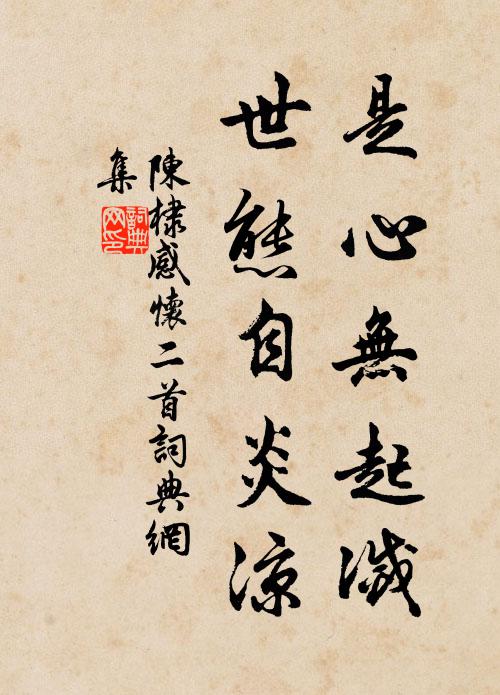 是心無起滅
世態自炎涼
陳棣感懷二首詞典網
集
詞典
网印